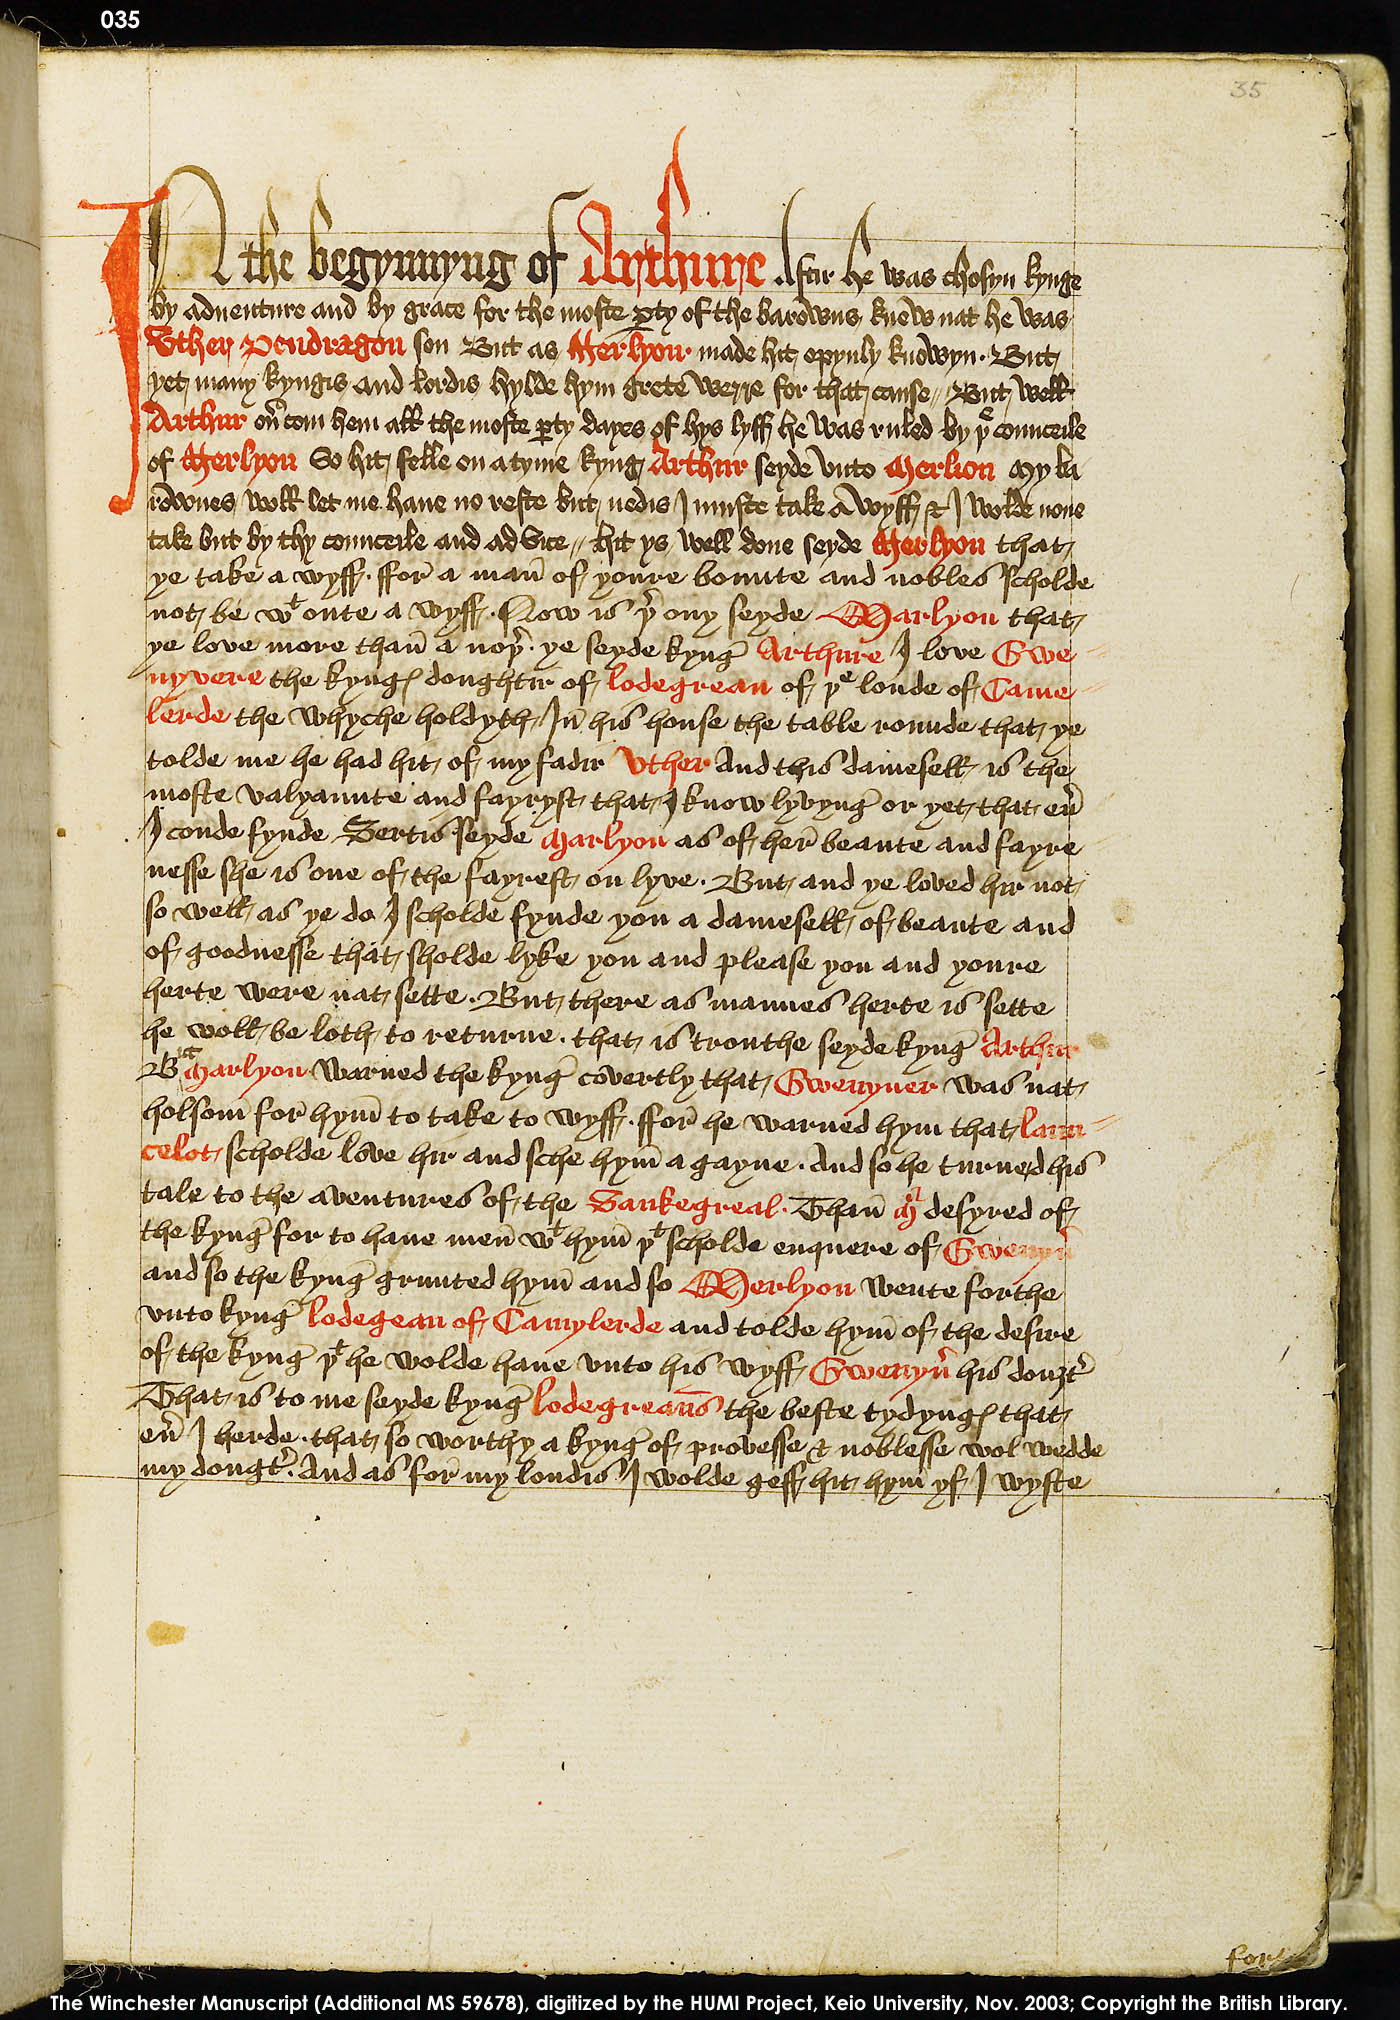 035
35
IN the begynnyng of Arthure Aftir he was chosyn kynge
by adventure and by grace for the moste ꝑty of the barowns knew nat he was
Vther Pendragon son But as Merlyon made hit opynly knowyn · But
yet many kyngis and lordis hylde hym grete werre for that cause // But well
Arthur oũcom hem all the moste ꝑty dayes of hys lyff he was ruled by þͤ counceile
of Merlyon So hit felle on a tyme kyng Arthur seyde vnto Merlion My ba
rownes woll let me haue no reste but nedis I muste take a wyff & I wolde none
take but by thy counceile and advice // hit ys well done seyde Merlyon that
ye take a wyff · ffor a man̄ of youre bounte and nobles scholde
not be wᵗ oute a wyff · Now is þ̉ ony seyde Marlyon that
ye love more than̄ a noþ̉ · ye seyde kynḡ Arthure I love Gwe
nyvere the kyngꝭ doughtir of lodegrean of þᵉ londe of Came
lerde the whyche holdyth In̄ his house the table rounde that ye
tolde me he had hit of my fadir Vther And this damesell is the
moste valyaunte and fayryst that I know lyvynḡ or yet that eũ
I coude fynde Sertis seyde Marlyon as of her̄ beaute and fayre
nesse she is one of the fayrest on lyve · But and ye loved hir not
so well as ye do I scholde fynde you a damesell of beaute and
of goodnesse that sholde lyke you and please you and youre
herte were nat sette · But there as mannes herte is sette
he woll be loth to returne · that is trouthe seyde kynḡ Arthur
Bᵘᵗ Marlyon warned the kynḡ covertly that Gwenyuer was nat
holsom for̄ hym̄ to take to wyff · ffor̄ he warned hym that laun
celot scholde love hir and sche hym̄ a gayne · And so he turned his
tale to the aventures of the Sankegreal · Than̄ M̉ desyred of
the kynḡ for to haue men̄ wᵗ hym̄ þᵗ scholde enquere of Gwenyũ
and so the kynḡ grunted hym̄ and so Merlyon wente forthe
vnto kynḡ lodegean of Camylerde and tolde hym̄ of the desire
of the kynḡ þᵗ he wolde haue vnto his wyff Gwenyũ his douȝt̉
That is to me seyde kynḡ lodegreaūs the beste tydyngꝭ that
eũ I herde · that so worthy a kynḡ of provesse & noblesse wol wedde
my dougt̉ · And as for̄ my londis I wolde geff hit hym̄ yf I wyste
The Winchester Manuscript (Additional MS 59678), digitized by the HUMI Project, Keio University, Nov. 2003; Copyright the British Library.